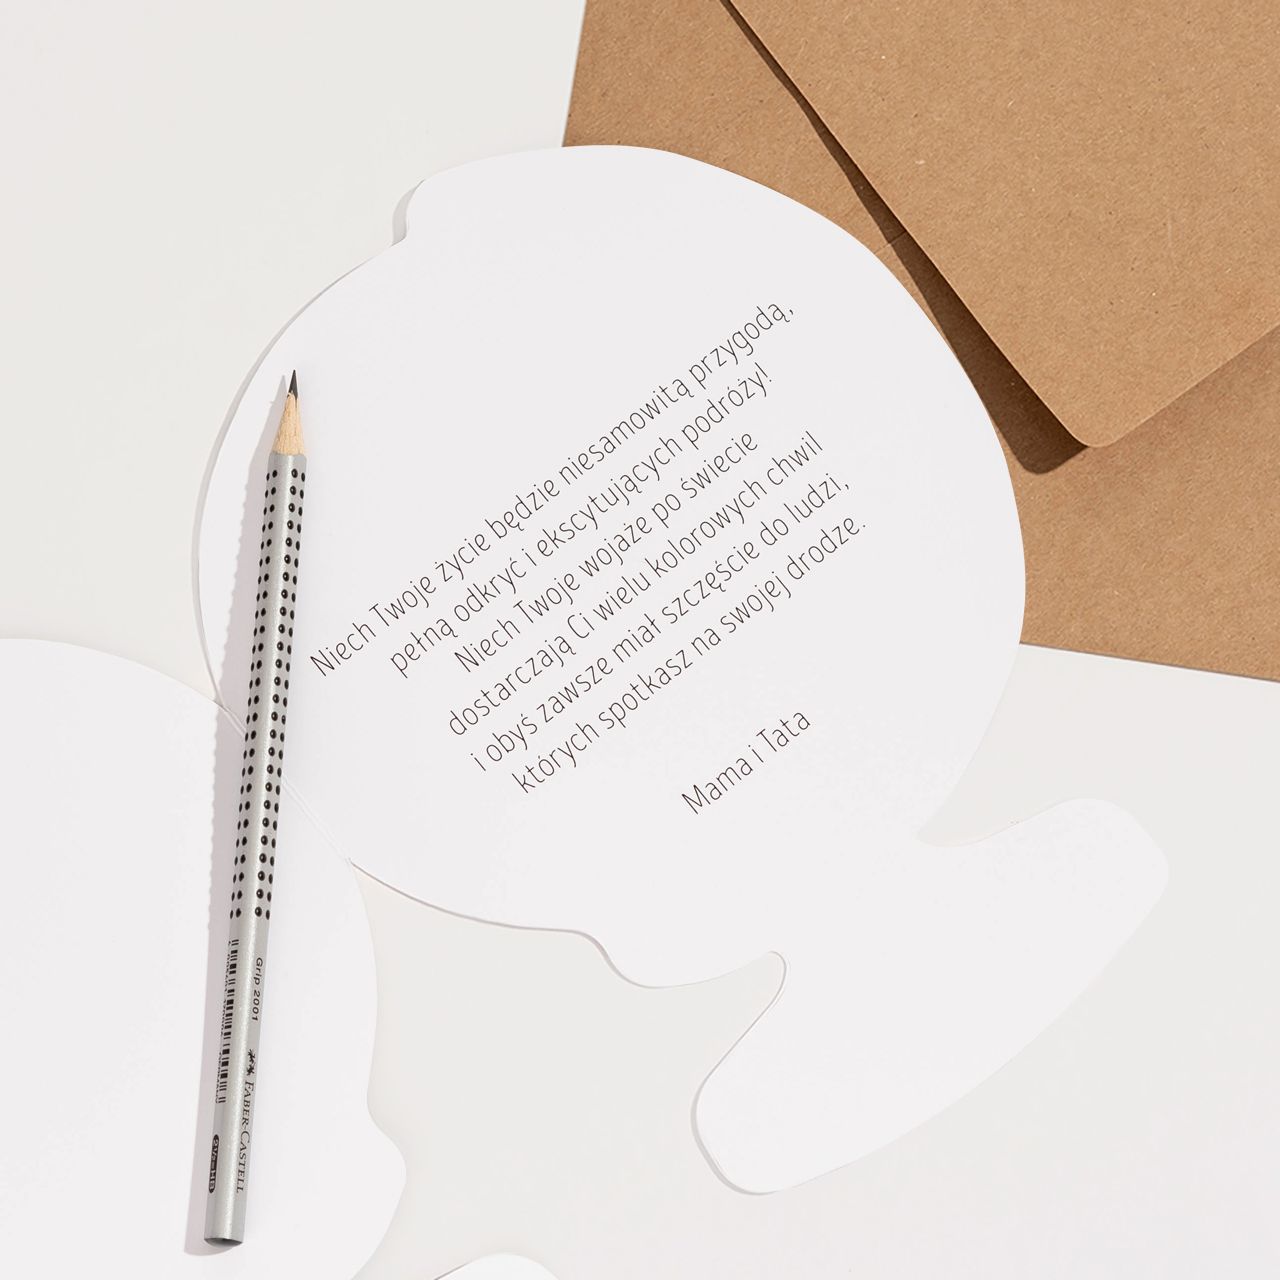 Niech Twoje życie będzie niesamowitą przygodą,
pełną odkryć i ekscytujących podróży!
Niech Twoje wojaże po świecie
dostarczają Ci wielu kolorowych chwil
i obyś zawsze miał szczęście do ludzi,
których spotkasz na swojej drodze.
Mama i Tata
Grip 2001
FABER-CASTELL
2½=HB